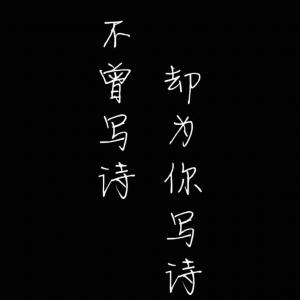 不曾写诗
却为你写诗